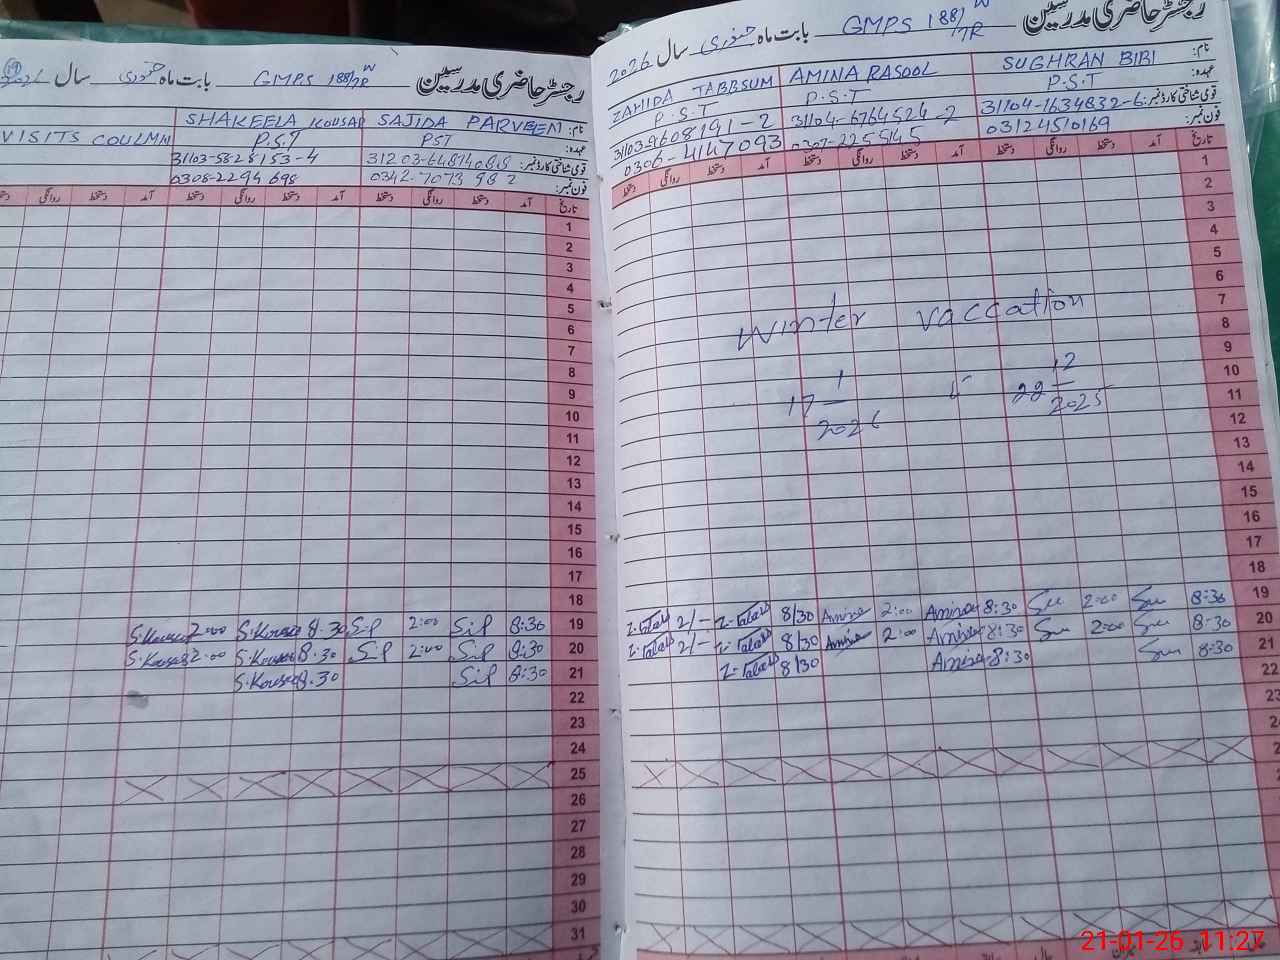 رجسٹر حاضری مدرسین GMPS 188/7R W بابت ماہ جنوری سال 2026
نام: SUGHRAN BIBI AMINA RASOOL ZAHIDA TABBSUM
عہدہ: P.S.T P.S.T P.S.T
قومی شناختی کارڈ نمبر: 31104-1634832-6 31104-6764524-2 31103-9608191-2
فون نمبر: 03124510169 0307-2255145 0306-4147093
تاریخ آمد دستخط روانگی دستخط آمد دستخط روانگی دستخط آمد دستخط روانگی دستخط
1
2
3
4
5
6
7
8
9
10
11
12
13
14
15
16
17
18
Winter vaccation
22 12 2025 17 1 2026
19 8:30 Su 2:00 Su 8:30 Amina 2:00 Amina 8/30 2/-
20 8:30 Su 2:00 Su 8:30 Amina 2:00 Amina 8/30 2/-
21 8:30 Su 8:30 Amina 8/30
22
23
رجسٹر حاضری مدرسین GMPS 188/7R W بابت ماہ جنوری سال
نام: SAJIDA PARVEEN SHAKEELA KOUSAR
عہدہ: PST P.S.T VISITS COULMN
قومی شناختی کارڈ نمبر: 31103-5828153-4
فون نمبر: 0342-7073982 0308-2294698
تاریخ آمد دستخط روانگی دستخط آمد دستخط روانگی دستخط آمد دستخط روانگی
1
2
3
4
5
6
7
8
9
10
11
12
13
14
15
16
17
18
19 8:30 Sip 2:00 Sip 8.30 S.Kousar 2:00 S.Kousar
20 8:30 Sip 2:00 Sip 8.30 S.Kousar 2:00 S.Kousar
21 8:30 Sip 8.30 S.Kousar
22
23
24
25
26
27
28
29
30
31
21-01-26 11:27